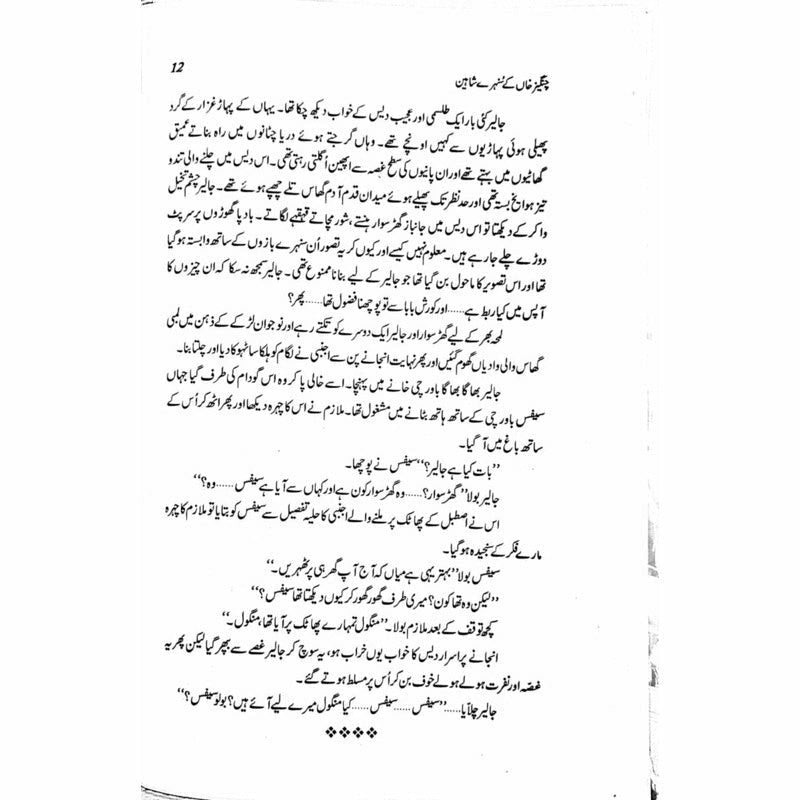 چنگیز خاں کے سنہرے شاہین
12
جالیر کئی بار ایک طلسمی اور عجیب دیس کے خواب دیکھ چکا تھا۔ یہاں کے پہاڑ غزار کے گرد
پھیلی ہوئی پہاڑیوں سے کہیں اونچے تھے۔ وہاں گرجتے ہوئے دریا چٹانوں میں راہ بناتے عمیق
گھاٹیوں میں بہتے تھے اور ان پانیوں کی سطح غصہ سے اپھین اُگلتی رہتی تھی۔ اس دیس میں چلنے والی تندو
تیز ہوا یخ بستہ تھی اور حد نظر تک پھیلے ہوئے میدان قدم آدم گھاس تلے چھپے ہوئے تھے۔ جالیر چشم تخیل
وا کر کے دیکھتا تو اس دیس میں جانباز گھڑ سوار ہنستے، شور مچاتے قہقہے لگاتے۔ باد پا گھوڑوں پر سرپٹ
دوڑے چلے جا رہے ہیں۔ معلوم نہیں کیسے اور کیوں کر یہ تصور اُن سنہرے بازوں کے ساتھ وابستہ ہو گیا
تھا اور اس تصویر کا ماحول بن گیا تھا جو جالیر کے لیے بنانا ممنوع تھی۔ جالیر سمجھ نہ سکا کہ ان چیزوں کا
آپس میں کیا ربط ہے......اور کورش بابا سے تو پوچھنا فضول تھا......پھر؟
لمحہ بھر کے لیے گھڑ سوار اور جالیر ایک دوسرے کو تکتے رہے اور نوجوان لڑکے کے ذہن میں لمبی
گھاس والی وادیاں گھوم گئیں اور پھر نہایت انجانے پن سے اجنبی نے لگام کو ہلکا سا ٹہوکا دیا اور چلتا بنا۔
جالیر بھاگا بھاگا باورچی خانے میں پہنچا۔ اسے خالی پا کر وہ اس گودام کی طرف گیا جہاں
سیفس باورچی کے ساتھ ہاتھ بٹانے میں مشغول تھا۔ ملازم نے اس کا چہرہ دیکھا اور پھر اٹھ کر اُس کے
ساتھ باغ میں آ گیا۔
’’بات کیا ہے جالیر؟‘‘ سیفس نے پوچھا۔
جالیر بولا ’’گھڑ سوار؟......وہ گھڑ سوار کون ہے اور کہاں سے آیا ہے سیفس......وہ؟‘‘
اس نے اصطبل کے پھاٹک پر ملنے والے اجنبی کا حلیہ تفصیل سے سیفس کو بتایا تو ملازم کا چہرہ
مارے فکر کے سنجیدہ ہو گیا۔
سیفس بولا ’’بہتر یہی ہے میاں کہ آج آپ گھر ہی پر ٹھہریں۔‘‘
’’لیکن وہ تھا کون؟ میری طرف گھور گھور کر کیوں دیکھتا تھا سیفس؟‘‘
کچھ توقف کے بعد ملازم بولا۔ ’’منگول تمہارے پھاٹک پر آیا تھا، منگول۔‘‘
انجانے پر اسرار دیس کا خواب یوں خراب ہو، یہ سوچ کر جالیر غصے سے بھپر گیا لیکن پھر یہ
غصّہ اور نفرت ہولے ہولے خوف بن کر اُس پر مسلط ہوتے گئے۔
جالیر چلاّیا.....’’سیفس......سیفس......کیا منگول میرے لیے آئے ہیں؟ بولو سیفس؟‘‘